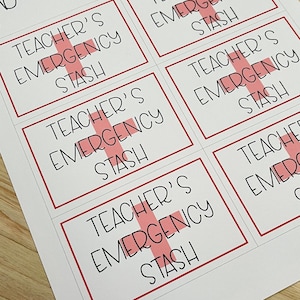 TEACHER'S
EMERGENCY
STASH
EMERGENCY
STASH
TEACHER'S
EMERGENCY
STASH
TEACHER'S
EMERGENCY
STASH
TEACHER'S
EMERGENCY
STASH